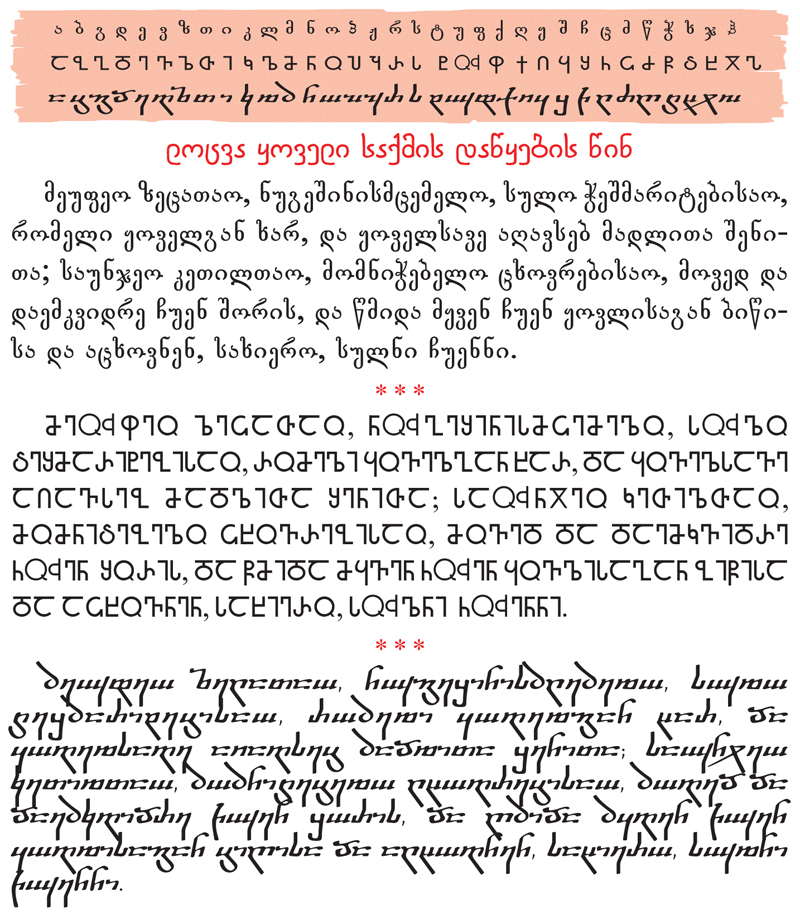 ა ბ გ დ ე ვ ზ თ ი კ ლ მ ნ ო პ ჟ რ ს ტ უ ფ ქ ღ ყ შ ჩ ც ძ წ ჭ ხ ჯ ჰ
Ⴀ Ⴁ Ⴂ Ⴃ Ⴄ Ⴅ Ⴆ Ⴇ Ⴈ Ⴉ Ⴊ Ⴋ Ⴌ Ⴍ Ⴎ Ⴏ Ⴐ Ⴑ Ⴒ ႭჃ Ⴔ Ⴕ Ⴖ Ⴗ Ⴘ Ⴙ Ⴚ Ⴛ Ⴜ Ⴝ Ⴞ Ⴟ Ⴠ
ⴀ ⴁ ⴂ ⴃ ⴄ ⴅ ⴆ ⴇ ⴈ ⴉ ⴊ ⴋ ⴌ ⴍ ⴎ ⴏ ⴐ ⴑ ⴒ ⴍⴣ ⴔ ⴕ ⴖ ⴗ ⴘ ⴙ ⴚ ⴛ ⴜ ⴝ ⴞ ⴟ ⴠ
ლოცვა ყოველი საქმის დაწყების წინ
მეუფეო ზეცათაო, ნუგეშინისმცემელო, სულო ჭეშმარიტებისაო,
რომელი ყოველგან ხარ, და ყოველსავე აღავსებ მადლითა შენი-
თა; საუნჯეო კეთილთაო, მომნიჭებელო ცხოვრებისაო, მოვედ და
დაემკვიდრე ჩუენ შორის, და წმიდა მყვენ ჩუენ ყოვლისაგან ბიწი-
სა და აცხოვნენ, სახიერო, სულნი ჩუენნი.
* * *
ႫႤႭჃႴႤႭ ႦႤႺႠႧႠႭ, ႬႭჃႢႤႸႨႬႨႱႫႺႤႫႤႪႭ, ႱႭჃႪႭ
ႽႤႸႫႠႰႨႲႤႡႨႱႠႭ, ႰႭႫႤႪႨ ႷႭႥႤႪႢႠႬ ႾႠႰ, ႣႠ ႷႭႥႤႪႱႠႥႤ
ႠႶႠႥႱႤႡ ႫႠႣႪႨႧႠ ႸႤႬႨႧႠ; ႱႠႭჃႬႿႤႭ ႩႤႧႨႪႧႠႭ,
ႫႭႫႬႨႽႤႡႤႪႭ ႺႾႭႥႰႤႡႨႱႠႭ, ႫႭႥႤႣ ႣႠ ႣႠႤႫႩႥႨႣႰႤ
ႹႭჃႤႬ ႸႭႰႨႱ, ႣႠ ႼႫႨႣႠ ႫႷႥႤႬ ႹႭჃႤႬ ႷႭႥႪႨႱႠႢႠႬ ႡႨႼႨႱႠ
ႣႠ ႠႺႾႭႥႬႤႬ, ႱႠႾႨႤႰႭ, ႱႭჃႪႬႨ ႹႭჃႤႬႬႨ.
* * *
ⴋⴄⴍⴣⴔⴄⴍ ⴆⴄⴚⴀⴇⴀⴍ, ⴌⴍⴣⴂⴄⴘⴈⴌⴈⴑⴋⴚⴄⴋⴄⴊⴍ, ⴑⴍⴣⴊⴍ
ⴝⴄⴘⴋⴀⴐⴈⴒⴄⴁⴈⴑⴀⴍ, ⴐⴍⴋⴄⴊⴈ ⴗⴍⴅⴄⴊⴂⴀⴌ ⴞⴀⴐ, ⴃⴀ
ⴗⴍⴅⴄⴊⴑⴀⴅⴄ ⴀⴖⴀⴅⴑⴄⴁ ⴋⴀⴃⴊⴈⴇⴀ ⴘⴄⴌⴈⴇⴀ; ⴑⴀⴍⴣⴌⴟⴄⴍ
ⴉⴄⴇⴈⴊⴇⴀⴍ, ⴋⴍⴋⴌⴈⴝⴄⴁⴄⴊⴍ ⴚⴞⴍⴅⴐⴄⴁⴈⴑⴀⴍ, ⴋⴍⴅⴄⴃ ⴃⴀ
ⴃⴀⴄⴋⴉⴅⴈⴃⴐⴄ ⴙⴍⴣⴄⴌ ⴘⴍⴐⴈⴑ, ⴃⴀ ⴜⴋⴈⴃⴀ ⴋⴗⴅⴄⴌ ⴙⴍⴣⴄⴌ
ⴗⴍⴅⴊⴈⴑⴀⴂⴀⴌ ⴁⴈⴜⴈⴑⴀ ⴃⴀ ⴀⴚⴞⴍⴅⴌⴄⴌ, ⴑⴀⴞⴈⴄⴐⴍ, ⴑⴍⴣⴊⴌⴈ
ⴙⴍⴣⴄⴌⴌⴈ.